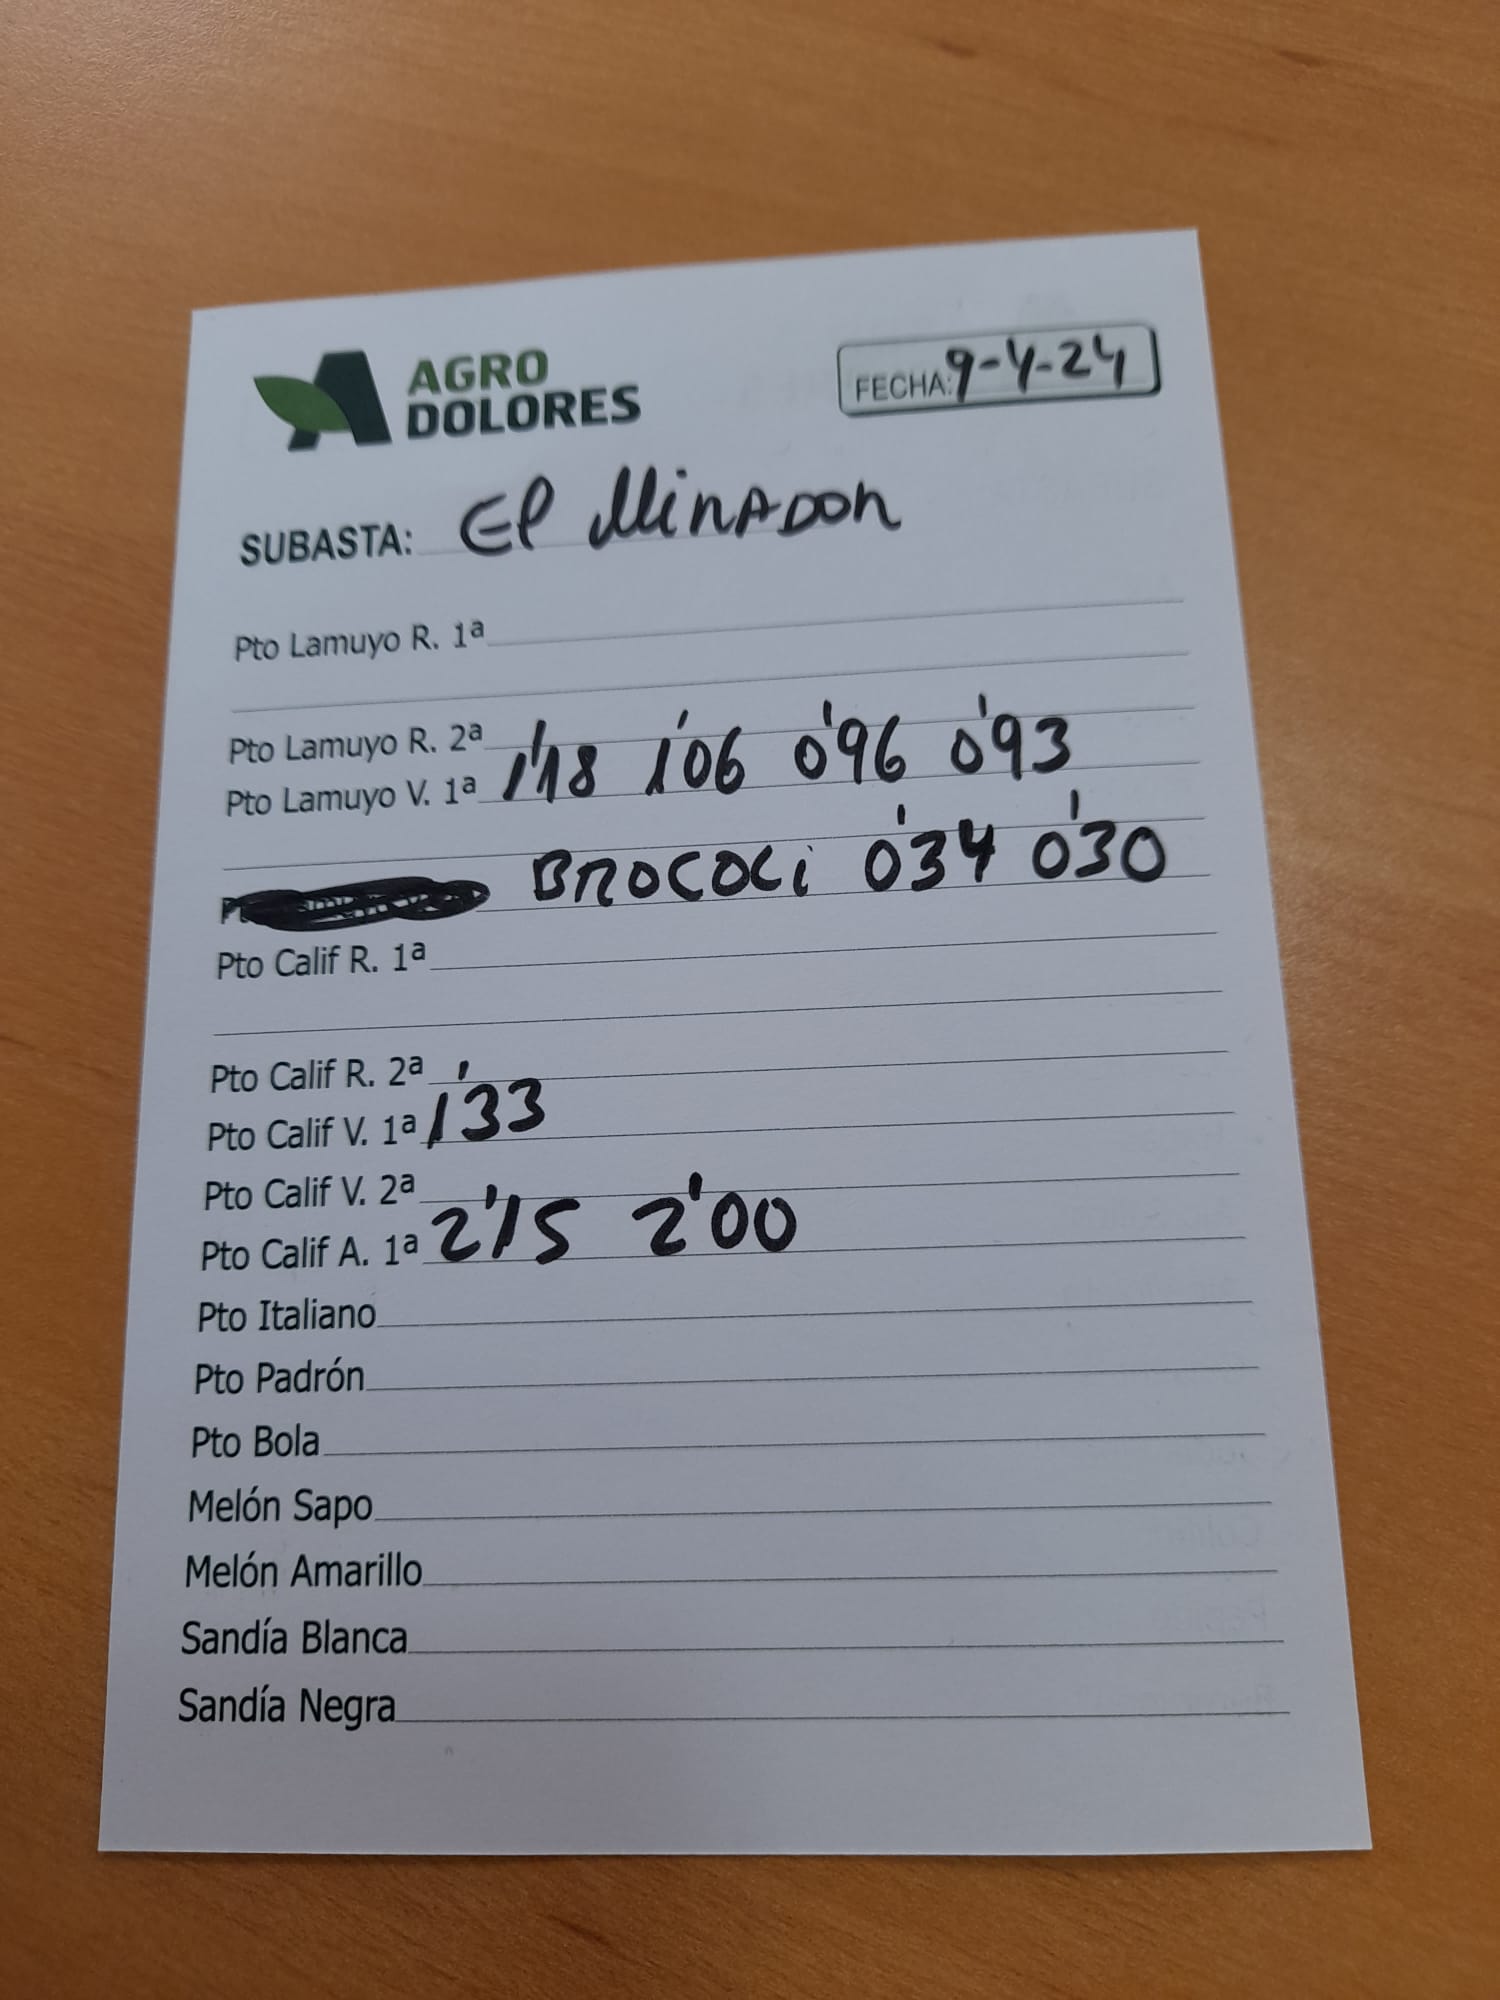 AGRO
DOLORES
FECHA: 9-4-24
SUBASTA: El MinADOR
Pto Lamuyo R. 1ª
Pto Lamuyo R. 2ª
Pto Lamuyo V. 1ª 1'18 1'06 0'96 0'93
BROCOCi 0'34 0'30
Pto Calif R. 1ª
Pto Calif R. 2ª
Pto Calif V. 1ª 1'33
Pto Calif V. 2ª
Pto Calif A. 1ª 2'15 2'00
Pto Italiano
Pto Padrón
Pto Bola
Melón Sapo
Melón Amarillo
Sandía Blanca
Sandía Negra